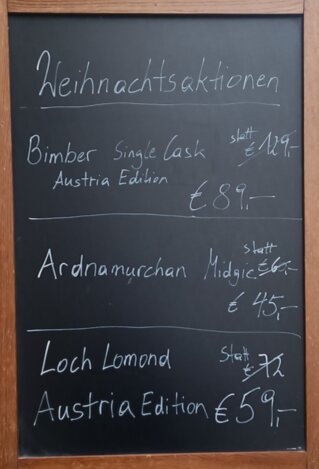 Weihnachtsaktionen
Bimber Single Cask statt € 129,-
Austria Edition
€ 89,-
statt
Ardnamurchan Midgie
€ 45,-
Loch Lomond statt € 72
Austria Edition € 59,-